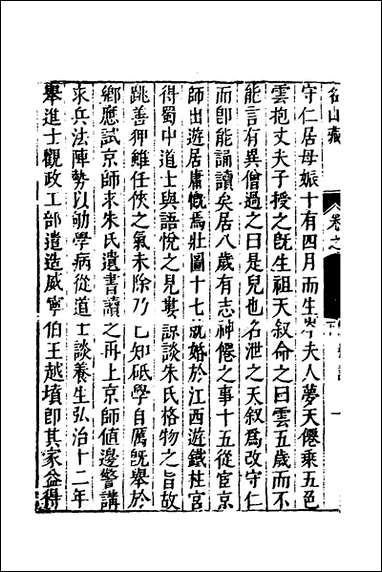 名山藏 卷之
守仁居母娠十有四月而生岑夫人夢天僊乘五色
雲抱丈夫子授之旣生祖天叙命之曰雲五歲而不
能言有異僧過之曰是兒也名泄之天叙爲改守仁
而卽能誦讀矣居八歲有志神僊之事十五從宦京
師出遊居庸慨焉壯圖十七就婚於江西遊鐵柱宮
得蜀中道士與語悅之見婁諒談朱氏格物之旨故
跳善狎雖任俠之氣未除乃已知砥學自厲旣舉於
鄉應試京師求朱氏遺書讀之再上京師値邊警講
求兵法陣勢以劬學病從道士談養生弘治十二年
舉進士觀政工部遣造威寧伯王越墳卽其家盆得